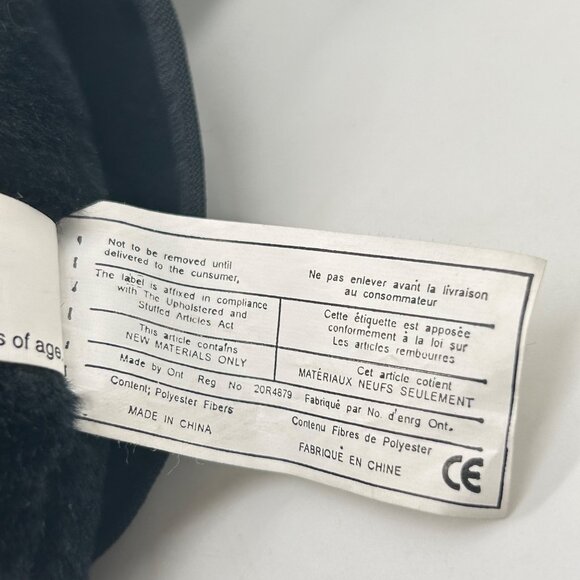 s of age
Not to be removed until
delivered to the cunsumer,
Ne pas enlever avant la livraison
au consommateur
The label is affixed in compliance
with The Upholstered and
Stuffed Articles Act
Cette étiquette est apposée
conformément à la loi sur
Les articles rembourres
This article contafns
NEW MATERIALS ONLY
Cet article cotient
MATÉRIAUX NEUFS SEULEMENT
Made by Ont Reg No 20R4879 Fabriqué par No. d'enrg Ont.
Content; Polyester Fibers
MADE IN CHINA
Contenu Fibres de Polyester
FABRIQUÉ EN CHINE
CE